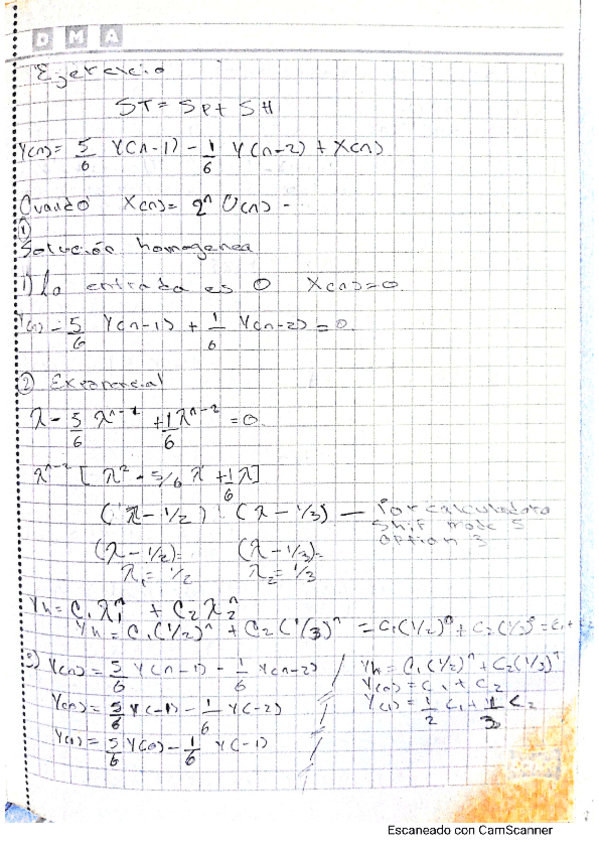 DMA
Ejercicio
ST = Sp + SH
Y(n) = 5/6 Y(n-1) - 1/6 Y(n-2) + X(n)
Cuando X(n) = 2^n U(n) -
①
Solución homogenea
1) La entrada es 0 X(n) = 0.
Y(n) - 5/6 Y(n-1) + 1/6 Y(n-2) = 0.
② Exponencial
λ - 5/6 λ^n-1 + 1/6 λ^n-2 = 0
λ^n-2 [ λ^2 - 5/6 λ + 1/6 λ]
(λ - 1/2) (λ - 1/3) — Por calculadora
Shif mode 5
option 3
(λ - 1/2) = (λ - 1/3) =
λ1 = 1/2 λ2 = 1/3
Yh = C1 λ1^n + C2 λ2^n
Yh = C1 (1/2)^n + C2 (1/3)^n = C1 (1/2)^0 + C2 (1/3)^0 = C1 +
3) Y(n) = 5/6 Y(n-1) - 1/6 Y(n-2)
Y(0) = 5/6 Y(-1) - 1/6 Y(-2)
Y(1) = 5/6 Y(0) - 1/6 Y(-1)
Yh = C1 (1/2)^n + C2 (1/3)^n
Y(0) = C1 + C2
Y(1) = 1/2 C1 + 1/3 C2
Escaneado con CamScanner